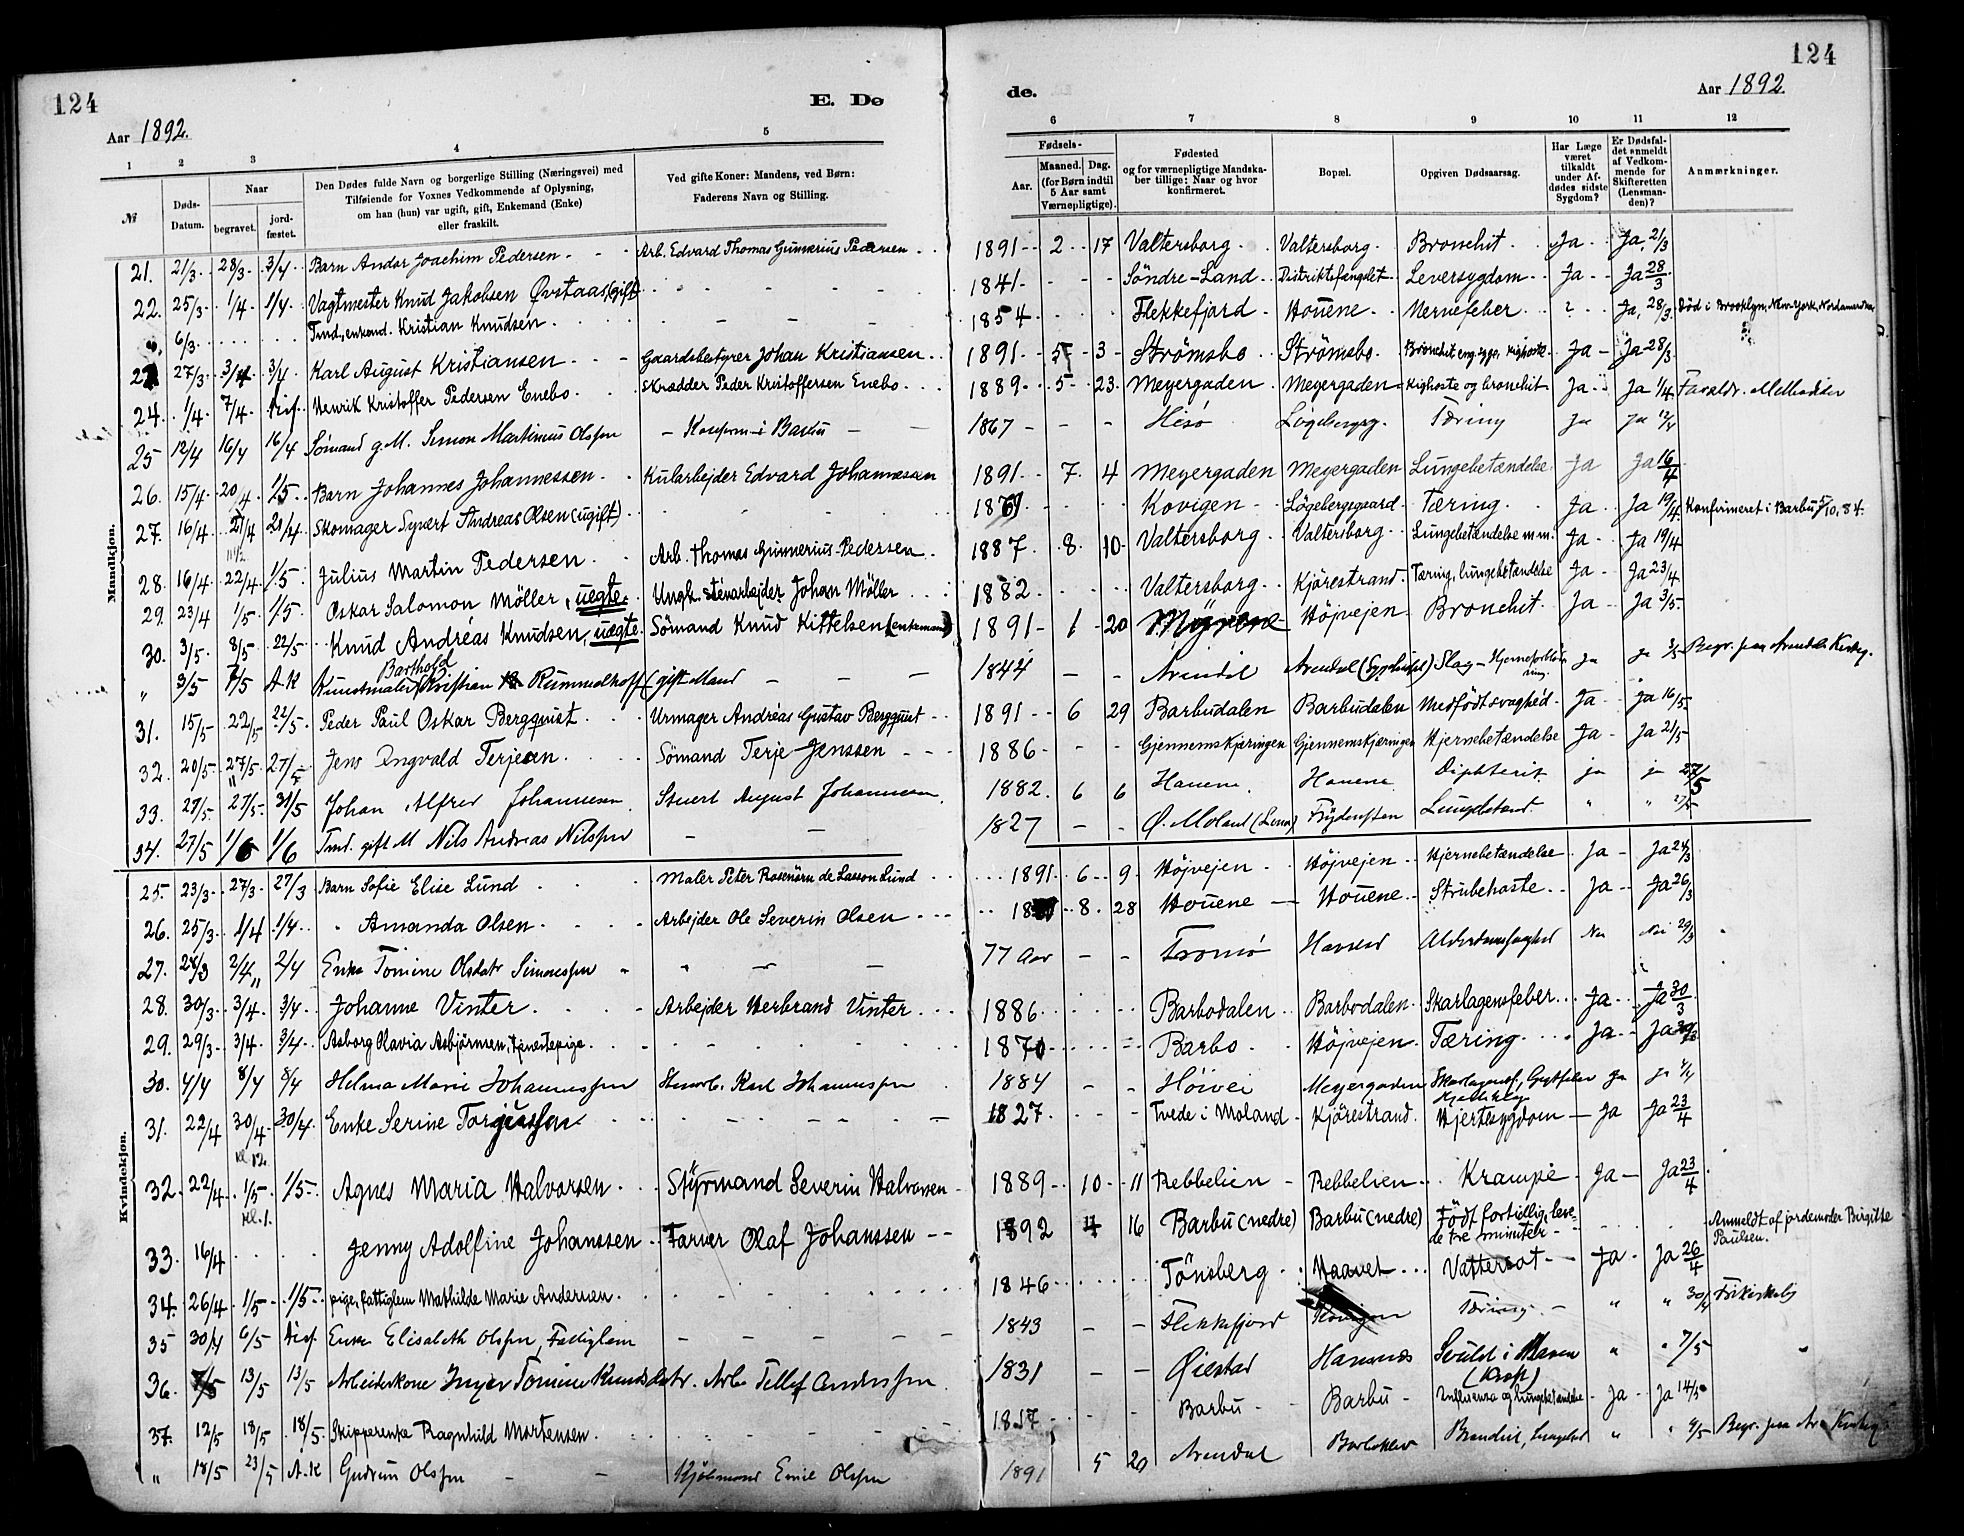 124
E. Dø
Aar 1892.
1 2 3 4 5
№
Døds-Datum.
Naar
begravet.
jord-fæstet.
Den Dødes fulde Navn og borgerlige Stilling (Næringsvei) med
Tilføiende for Voxnes Vedkommende af Oplysning,
om han (hun) var ugift, gift, Enkemand (Enke)
eller fraskilt.
Ved gifte Koner: Mandens, ved Børn:
Faderens Navn og Stilling.
Mandkjøn.
21. 21/3 28/3 3/4 Barn Andor Joachim Pedersen Arb. Edvard Thomas Gunnerius Pedersen
22. 25/3 1/4 1/4 Vagtmester Knud Jakobsen Øvstaas (gift)
" 6/3 Tmd, enkemd. Kristian Knudsen
23 27/3 3/4 3/4 Karl August Kristiansen Gaardsbestyrer Johan Kristiansen
24. 1/4 7/4 Disf. Henrik Kristoffer Pedersen Enebo Skrædder Peder Kristoffersen Enebo
25 12/4 16/4 16/4 Sømand g.M. Simon Martinius Olsen – Konfirm. i Barbu –
26. 15/4 20/4 1/5 Barn Johannes Johannessen Kularbejder Edvard Johannessen
27. 16/4 21/4 21/4 Skomager Syvert Andreas Olsen (ugift)
28. 16/4 22/4 1/5 Julius Martin Pedersen Arb. Thomas Gunnerius Pedersen
29. 23/4 1/5 1/5 Oskar Salomon Möller, uegte. Ungk. stenarbejder Johan Möller
30. 3/5 8/5 22/5 Knud Andréas Knudsen, uægte. Sömand Knud Kittelsen (enkemand)
" 3/5 7/5 A.K Kunstmaler Barthold Kristian Rummelhoff (gift Mand
31. 15/5 22/5 22/5 Peder Paul Oskar Bergquist Urmager Andréas Gustav Bergquist
32. 20/5 27/5 27/5 Jens Ingvald Terjesen Sömand Terje Jenssen
33. 27/5 27/5 31/5 Johan Alfred Johannesen Stuert August Johannesen
34. 27/5 1/6 1/6 Tmd. gift M Nils Andreas Nilssen
Kvindekjøn.
25. 23/3 27/3 27/3 Barn Sofie Elise Lund Maler Peter Rosenörn de Lasson Lund
26. 25/3 1/4 1/4 " Amanda Olsen Arbejder Ole Severin Olsen
27. 28/3 2/4 2/4 Enke Tomine Olsdatr Simonssen
28. 30/3 3/4 3/4 Johanne Vinter Arbejder Herbrand Vinter
29. 29/3 3/4 3/4 Asborg Olavia Asbjörnsen, tjenestepige
30. 4/4 8/4 8/4 Helma Marie Johannessen Stuerb. Karl Johannessen
31. 22/4 30/4 30/4 Enke Serine Torjussen
kl 12.
32. 22/4 1/5 1/5 Agnes Maria Halvorsen Styrmand Severin Halvorsen
kl. 1.
33. 16/4 Jenny Adolfine Johanssen Farver Olaf Johanssen
34. 26/4 1/5 1/5 pige, fattiglem Mathilde Marie Andersen
35 30/4 6/5 Disf. Enke Elisabeth Olssen, Fattiglem
36. 7/5 13/5 13/5 Arbeiderkone Inger Tomine Knudsdatr. Arb. Tellef Anderssen
37. 12/5 18/5 18/5 Skipperenke Ragnhild Mortensen
" 18/5 23/5 A.K Gudrun Olssen Kjöbmand Emil Olssen
124
de.
Aar 1892
6 7 8 9 10 11 12
Fødsels-
Aar.
Maaned. Dag.
(for Børn indtil
5 Aar samt
Værnepligtige).
Fødested
og for værnepligtige Mandska-
ber tillige: Naar og hvor
konfirmeret.
Bopæl.
Opgiven Dødsaarsag.
Har Læge
været
tilkaldt
under Af-
dødes sidste
Sygdom?
Er Dødsfal-
det anmeldt
af Vedkom-
mende for
Skifteretten
(Lensman-
den)?
Anmærkninger.
1891 2 17 Valtersborg Valtersborg Bronchit Ja Ja, 21/3
1841 Söndre-Land Distriktsfængslet Leversygdom Ja Ja 28/3
1854 Flekkefjord Houene Nervefeber ? Ja, 28/3 Död i Brooklyn, New-York, Nordamerika
1891 5 3 Strömsbo Strömsbo Bronchit Kighoste Ja Ja 28/3
1889 5 23 Meyergaden Meyergaden Kighoste og bronchit Ja Ja 1/4 Forældr. Methodister
1867 Hisø Lögebergsg. Tæring Ja Ja 12/4
1891 7 4 Meyergaden Meyergaden Lungebetændelse Ja Ja 16/4
1869 Kovigen Lögebergsgaard Tæring Ja Ja 19/4 Konfirmeret i Barbu 5/10, 84.
1887 8 10 Valtersborg Valtersborg Lungebetændelse m.m. Ja Ja 19/4
1882 Valtersborg Kjörestrand Tæring, lungebetændelse Ja Ja 23/4
1891 1 20 Höjvejen Bronchit Ja Ja 3/5
1844 Arendal Arendal (Sygehuset) Slag – Hjerneforblödning Ja Ja 3/5 Begr. paa Arendals Kirkeg.
1891 6 29 Barbudalen Barbudalen Medfödt svaghed Ja Ja 16/5
1886 Gjennemskjæringen Gjennemskjæringen Hjernebetændelse Ja Ja 21/5
1882 6 6 Houene Houene Diphterit ja ja 27/5
1827 Ø. Moland Frydensten Lungebetænd. " " 27/5
1891 6 9 Höjvejen Höjvejen Hjernebetændelse Ja Ja 24/3
8 28 Houene Houene Strubehoste Ja Ja 26/3
77 Aar Tromø Alderdomssvaghed Nei Nei 29/3
1886 Barbodalen Barbodalen Skarlagensfeber Ja Ja 30/3
1870 Barbo Höjvejen Tæring Ja Ja 30/3
1884 Höivei Meyergaden Skarlagensf., Ja Ja 4/4
1827 Tvede i Moland Kjörestrand Hjertesygdom Ja Ja 23/4
1889 10 11 Rebbelien Rebbelien Krampe Ja Ja 23/4
1892 4 16 Barbu (nedre) Barbu (nedre) Födt fortidlig, levede tre minuter Anmeldt af jordemoder Birgitte Paulsen.
1846 Tönsberg Haavet Vattersot Ja Ja 26/4
1843 Flekkefjord Kovigen Tæring " " 30/4 Frikirkelig
1831 Øiestad Svulst i Maven (Kræft) " " 7/5
1817 Barbu Barbu Influensa og lungebetændelse Ja Ja 14/5
1891 5 20 Arendal Bronchit, " " Begr. paa Ar. Kirkeg.